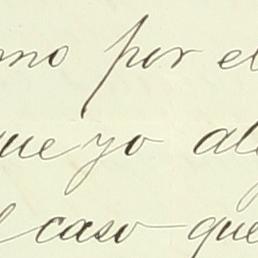 mo por el
que yo al
el caso que